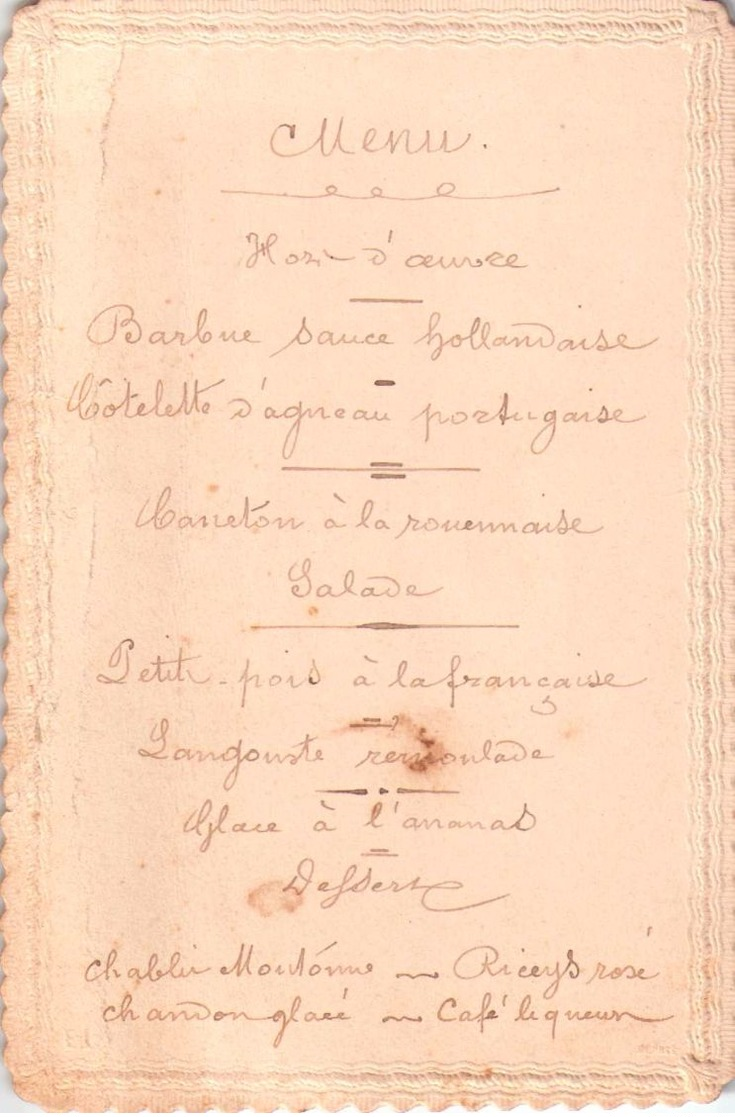 Menu.
Hors-d'œuvre
Barbue sauce hollandaise
Côtelette d'agneau portugaise
Caneton à la rouennaise
Salade
Petits-pois à la française
Langouste rémoulade
Glace à l'ananas
Dessert
chablis Moutónne ~ Riceys rosé
chandon glacé ~ Café liqueurs